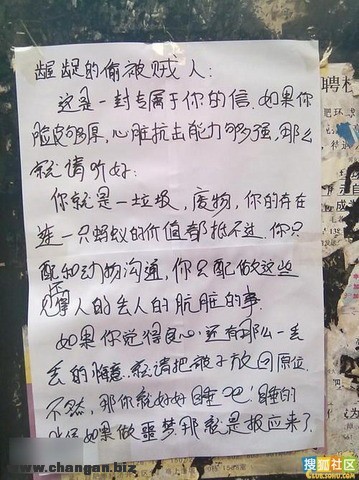 龌龊的偷被贼人:
这是一封专属于你的信.如果你
脸皮够厚,心脏抗击能力够强,那么
就请听好:
你就是一垃圾,废物,你的存在
连一只蚂蚁的价值都抵不过.你只
配和动物沟通,你只配做这些
人的丢人的肮脏的事.
如果你觉得良心还有那么一丢
丢的悔意.就请把被子放回原位.
不然,那你就好好睡吧!睡的
如果做噩梦.那就是报应来了.
聘
www.changan.biz
搜狐社区
CLUB.SOHU.COM